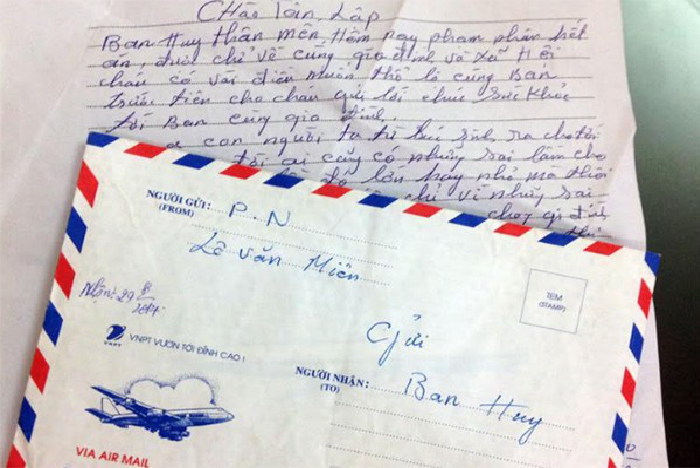 Chào Tân Lập
Ban Huy thân mến Hôm nay phạm nhân hết
án, được chở về cùng gia đình và xã hội
cháu có vài điều muốn thổ lộ cùng Ban
trước tiên cho cháu gửi lời chúc sức khỏe
tới Ban cùng gia đình.
con người ta từ khi sinh ra cho tới
tới ai cũng có những sai lầm cho
lớn hay nhỏ mà thôi
chỉ vì những sai
NGƯỜI GỬI: P.N
(FROM)
Lê Văn Miên
Nhận: 29/8
TEM
(STAMP)
VNPT
VNPT VƯƠN TỚI ĐỈNH CAO!
Gửi
NGƯỜI NHẬN: Ban Huy
(TO)
VIA AIR MAIL